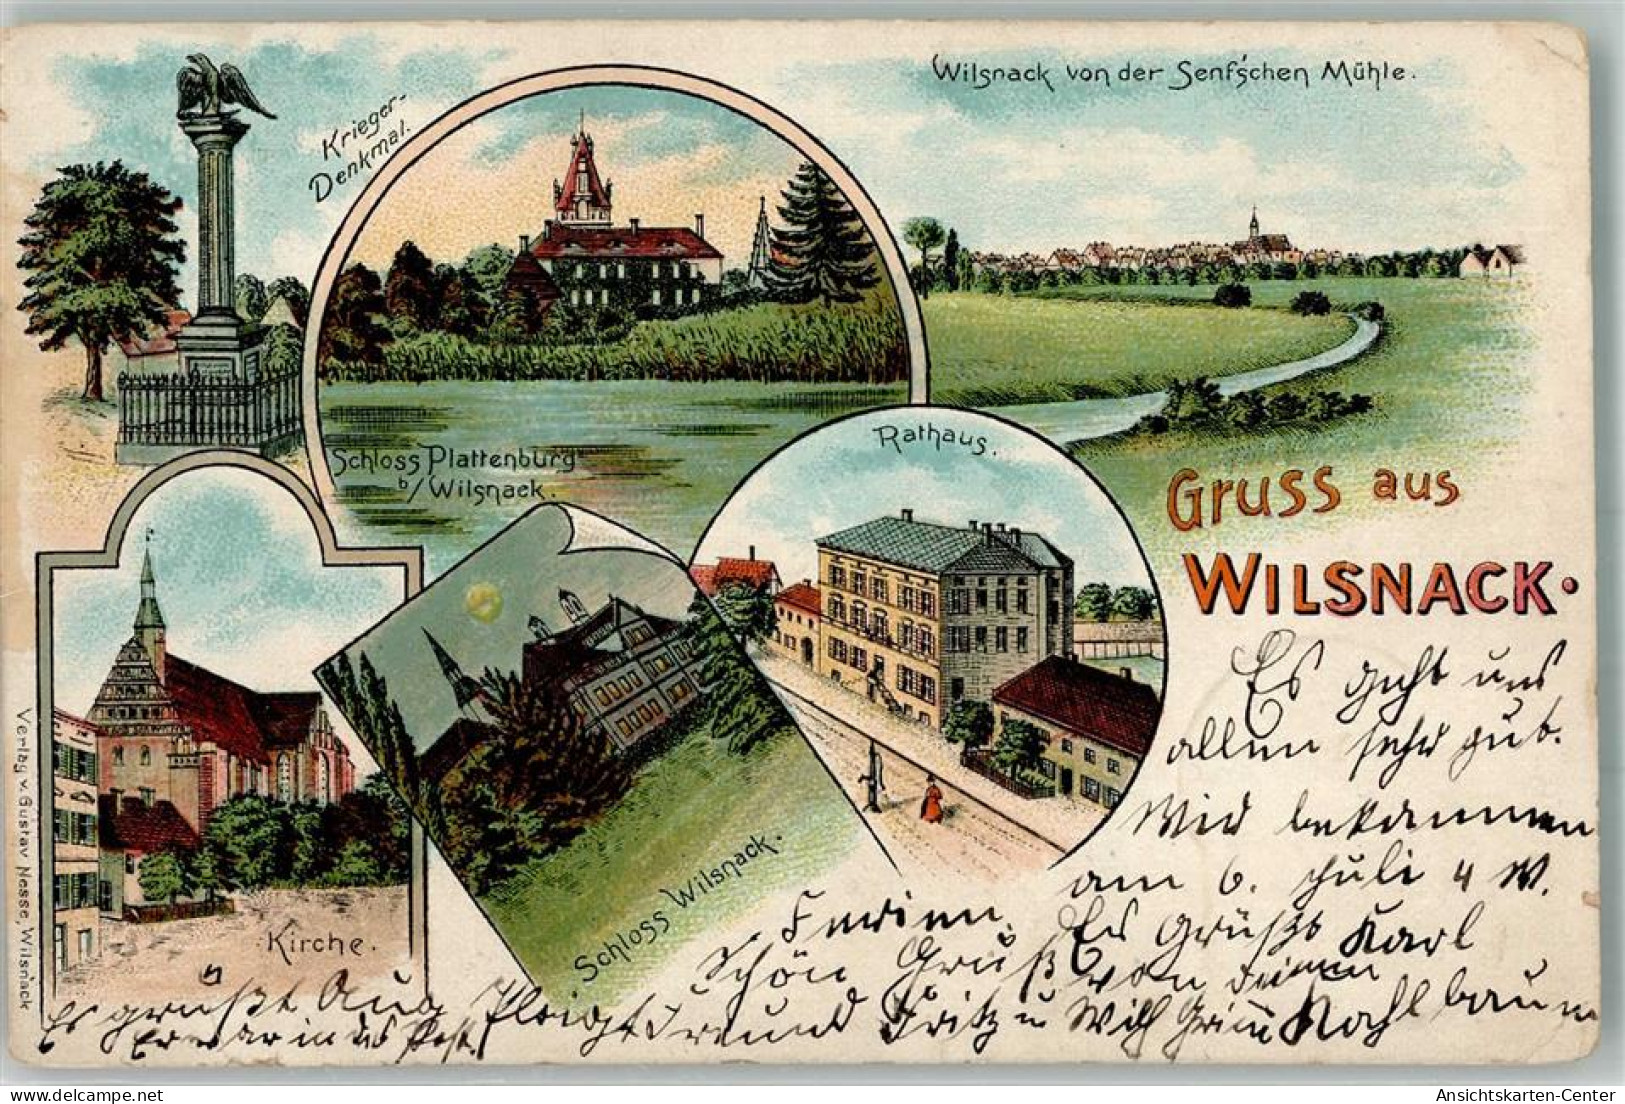 Wilsnack von der Senf'schen Mühle.
Krieger-
Denkmal.
Schloss Plattenburg
b/Wilsnack.
Rathaus.
Gruss aus
WILSNACK.
Kirche.
Schloss Wilsnack.
Verlag v. Gustav Nesse, Wilsnack
Es geht uns
allen sehr gut.
Wir bekommen
am 6. Juli 4 W.
Ferien. Es Grüßt Karl
Schön Gruß von deinen
Freund Fritz u Wilh Kohlbaum
Es grüßt Aug.
Er war in der Post.